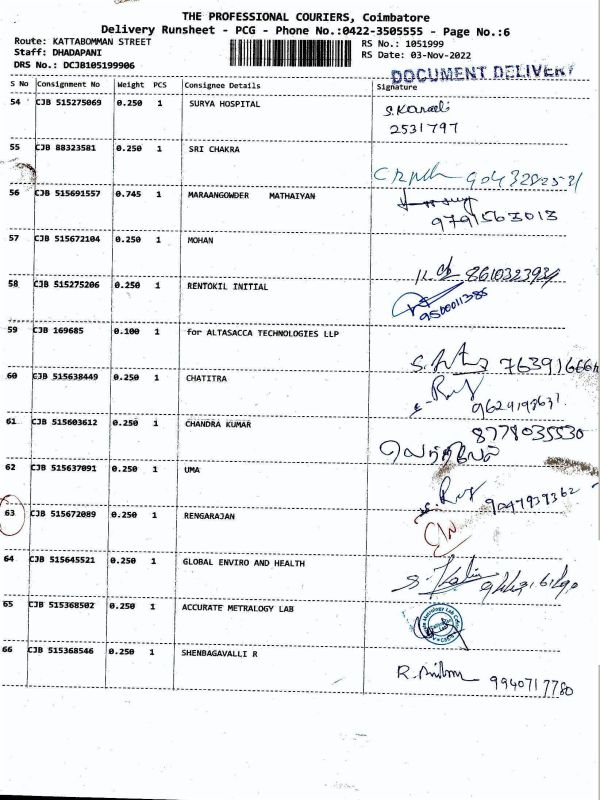 THE PROFESSIONAL COURIERS, Coimbatore
Delivery Runsheet - PCG - Phone No.:0422-3505555 - Page No.:6
Route: KATTABOMMAN STREET
RS No.: 1051999
Staff: DHADAPANI
RS Date: 03-Nov-2022
DRS No.: DCJB105199906
DOCUMENT DELIVERY
S No Consignment No Weight PCS Consignee Details Signature
54 CJB 515275069 0.250 1 SURYA HOSPITAL
2531797
55 CJB 88323581 0.250 1 SRI CHAKRA
56 CJB 515691557 0.745 1 MARAANGOWDER MATHAIYAN
9791563013
57 CJB 515672104 0.250 1 MOHAN
58 CJB 515275206 0.250 1 RENTOKIL INITIAL
9500011386
59 CJB 169685 0.100 1 for ALTASACCA TECHNOLOGIES LLP
60 CJB 515638449 0.250 1 CHATITRA
61 CJB 515603612 0.250 1 CHANDRA KUMAR
8778035530
62 CJB 515637091 0.250 1 UMA
63 CJB 515672089 0.250 1 RENGARAJAN
64 CJB 515645521 0.250 1 GLOBAL ENVIRO AND HEALTH
65 CJB 515368502 0.250 1 ACCURATE METRALOGY LAB
66 CJB 515368546 0.250 1 SHENBAGAVALLI R
9940717780